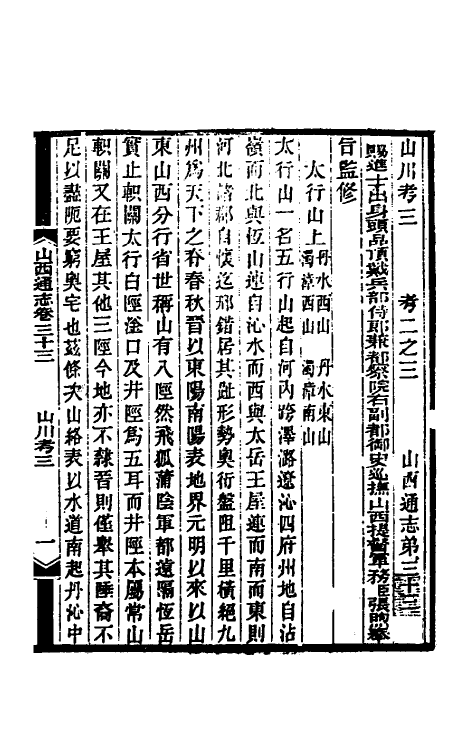 山川考三　考二之三　山西通志第三十三
賜進士出身頭品頂戴兵部侍郎兼都察院右副都御史巡撫山西提督軍務臣張煦奉
旨監修
太行山上 丹水西山 濁漳西山 丹水東山 濁漳南山
太行山一名五行山起自河內跨澤潞遼沁四府州地自沾
嶺而北與恆山連自沁水而西與太岳王屋連而南而東則
河北諸郡自懷迄邢錯居其趾形勢奧衍盤阻千里橫絕九
州爲天下之脊春秋晉以東陽南陽表地界元明以來以山
東山西分行省世稱山有八陘然飛狐蒲陰軍都遠隔恆岳
實止軹關太行白陘滏口及井陘爲五耳而井陘本屬常山
軹關又在王屋其他三陘今地亦不隸晉則僅舉其陲裔不
足以盡阨要窮奧宅也茲條次山絡表以水道南起丹沁中
山西通志卷三十三　山川考三　一